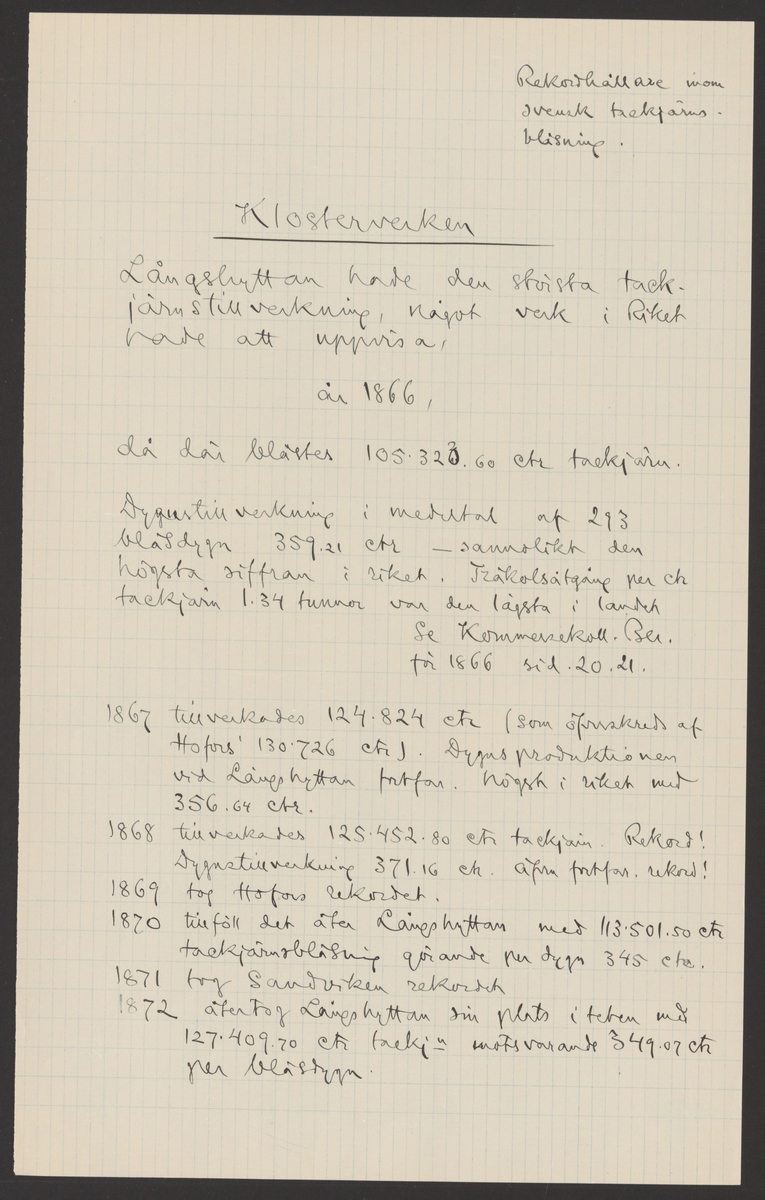 Rekordhållare inom
svensk tackjärns-
blåsning.
Klosterverken
Långshyttan hade den största tack-
järnstillverkning, något verk i Riket
hade att uppvisa,
år 1866,
då där blåstes 105.323.60 ctr tackjärn.
Dygnstillverkning i medeltal af 293
blåsdygn 359.21 ctr — sannolikt den
högsta siffran i riket. Träkolsåtgång per ctr
tackjärn 1.34 tunnor var den lägsta i landet
Se Kommersekoll. Ber.
för 1866 sid. 20.21.
1867 tillverkades 124.824 ctr (som öfverskreds af
Hofors' 130.726 ctr). Dygnsproduktionen
vid Långshyttan fortfar. högst i riket med
356.64 ctr.
1868 tillverkades 125.452.80 ctr tackjärn. Rekord!
Dygnstillverkning 371.16 ctr. äfven fortfar. rekord!
1869 tog Hofors rekordet.
1870 tillföll det åter Långshyttan med 113.501.50 ctr
tackjärnsblåsning görande per dygn 345 ctr.
1871 tog Sandviken rekordet
1872 återtog Långshyttan sin plats i teten med
127.409.70 ctr tackjn motsvarande 349.07 ctr
per blåsdygn.